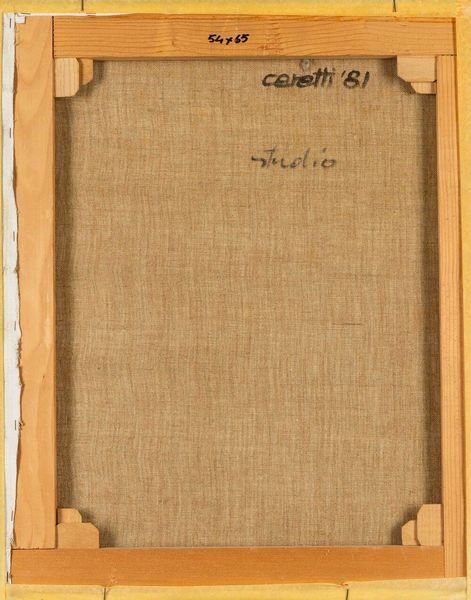 54x65
ceretti '81
studio